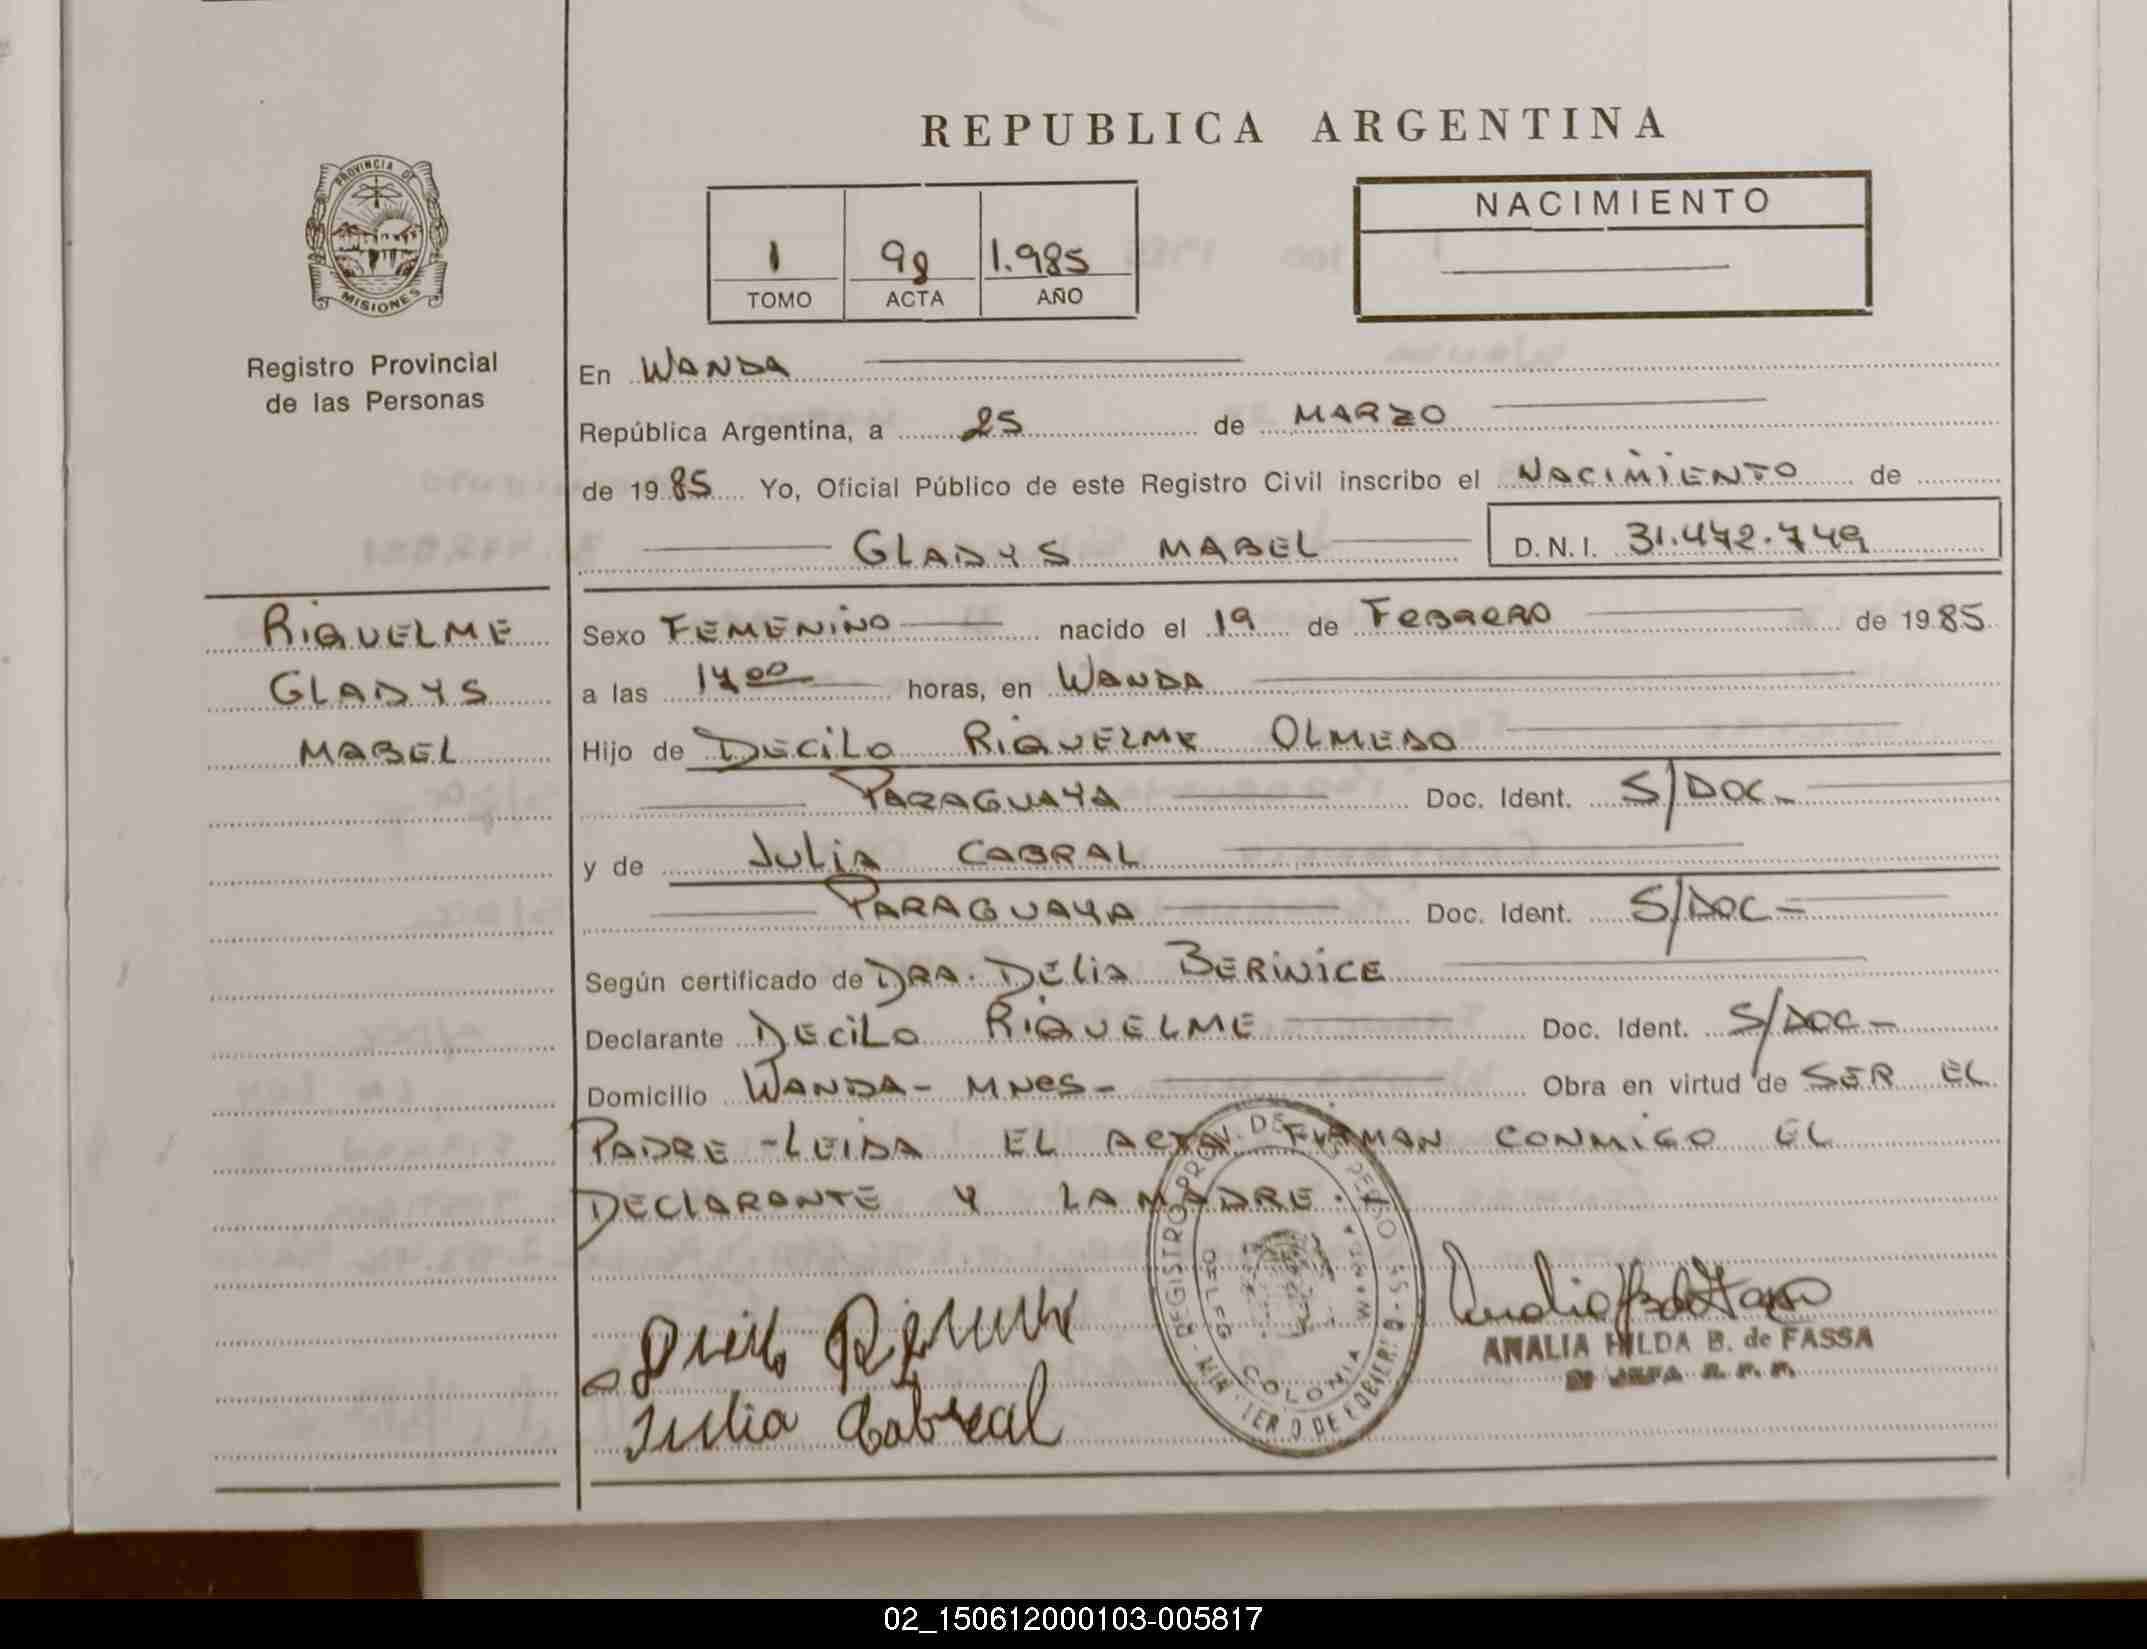 REPUBLICA ARGENTINA
PROVINCIA DE
MISIONES
Registro Provincial
de las Personas
1 98 1.985
TOMO ACTA AÑO
NACIMIENTO
En WANDA
República Argentina, a 25 de MARZO
de 1985 Yo, Oficial Público de este Registro Civil inscribo el NACIMIENTO de
GLADYS MABEL D.N.I. 31.472.749
RIQUELME
GLADYS
MABEL
Sexo FEMENINO nacido el 19 de FEBRERO de 1985
a las 17 00 horas, en WANDA
Hijo de DECILO RIQUELME OLMEDO
PARAGUAYA Doc. Ident. S/DOC-
y de JULIA CABRAL
PARAGUAYA Doc. Ident. S/DOC-
Según certificado de DRA. DELIA BERINICE
Declarante DECILO RIQUELME Doc. Ident. S/DOC-
Domicilio WANDA - MNES - Obra en virtud de SER EL
PADRE - LEIDA EL ACTA FIRMAN CONMIGO EL
DECLARANTE Y LA MADRE.
Decilo Riquelme
Julia Cabreal
COLONIA WANDA
ANALIA HILDA B. de FASSA
JEFA R. P. P.
02_150612000103-005817